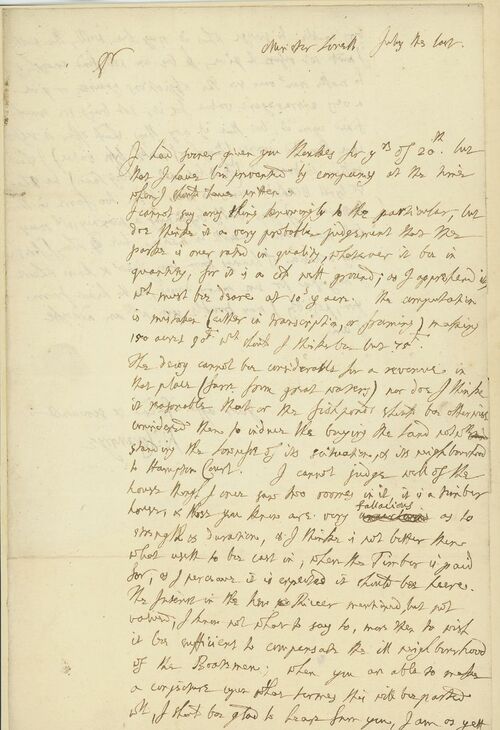 Minster Lovell July the last.
Sr
I had sooner given you thankes for yrs of 20th. but
that I have bin prvented by company at the times
when I should have written.
I cannot say any thing knowingly to the particuler, but
doe thinke it a very probable judgement that the
parke is over rated in quality, whatever it bee in
quantity, for it is a wett ground; as I apprehend it,
wt must bee deare at 10s ye acre. The computation
is mistaken (either in transcription, or framing) making
150 acres 90l wch I thinke bee but 75l
The decoy cannot bee considerable for a revenue in
that place (farre from great waters) nor doe I thinke
it reasonable that or the fishponds should bee otherwise
considered then to induce the buying the land notwth
standing the lownesse of its scituation, & its neighbourhood
to Hampton Court. I cannot judge well of the
house though I once saw two roomes in it, it is a timber
house, & those you know are very fallacious as to
strength & duration, & I thinke is not better then
what useth to bee cast in, when the Timber is paid
for, & I perceave it is expected it should bee heere.
The Interest in the mentioned, but not
valued, I know not what to say to, more then to wish
it bee sufficient to compensate the ill neighbourhood
of the Boatsmen; when you are able to make
a conjecture upon what termes this will bee parted
wth, I should bee glad to heare from you, I am as yett